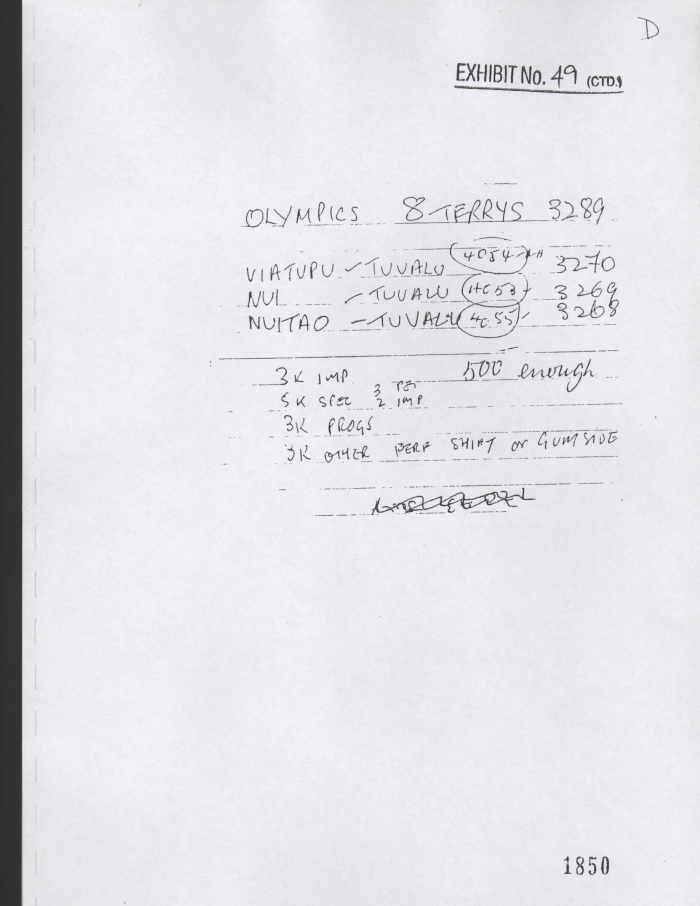 D
EXHIBIT No. 49 (CTD.)
OLYMPICS 8 TERRYS 3289
VIATUPU - TUVALU 4C54 3270
NUI - TUVALU 4C53 3269
NUITAO - TUVALU 4C55 3268
3K IMP 500 enough
5K SPEC 3 PET 2 IMP
3K PROGS
3K OTHER PERF SHIFT or GUMSIDE
1850